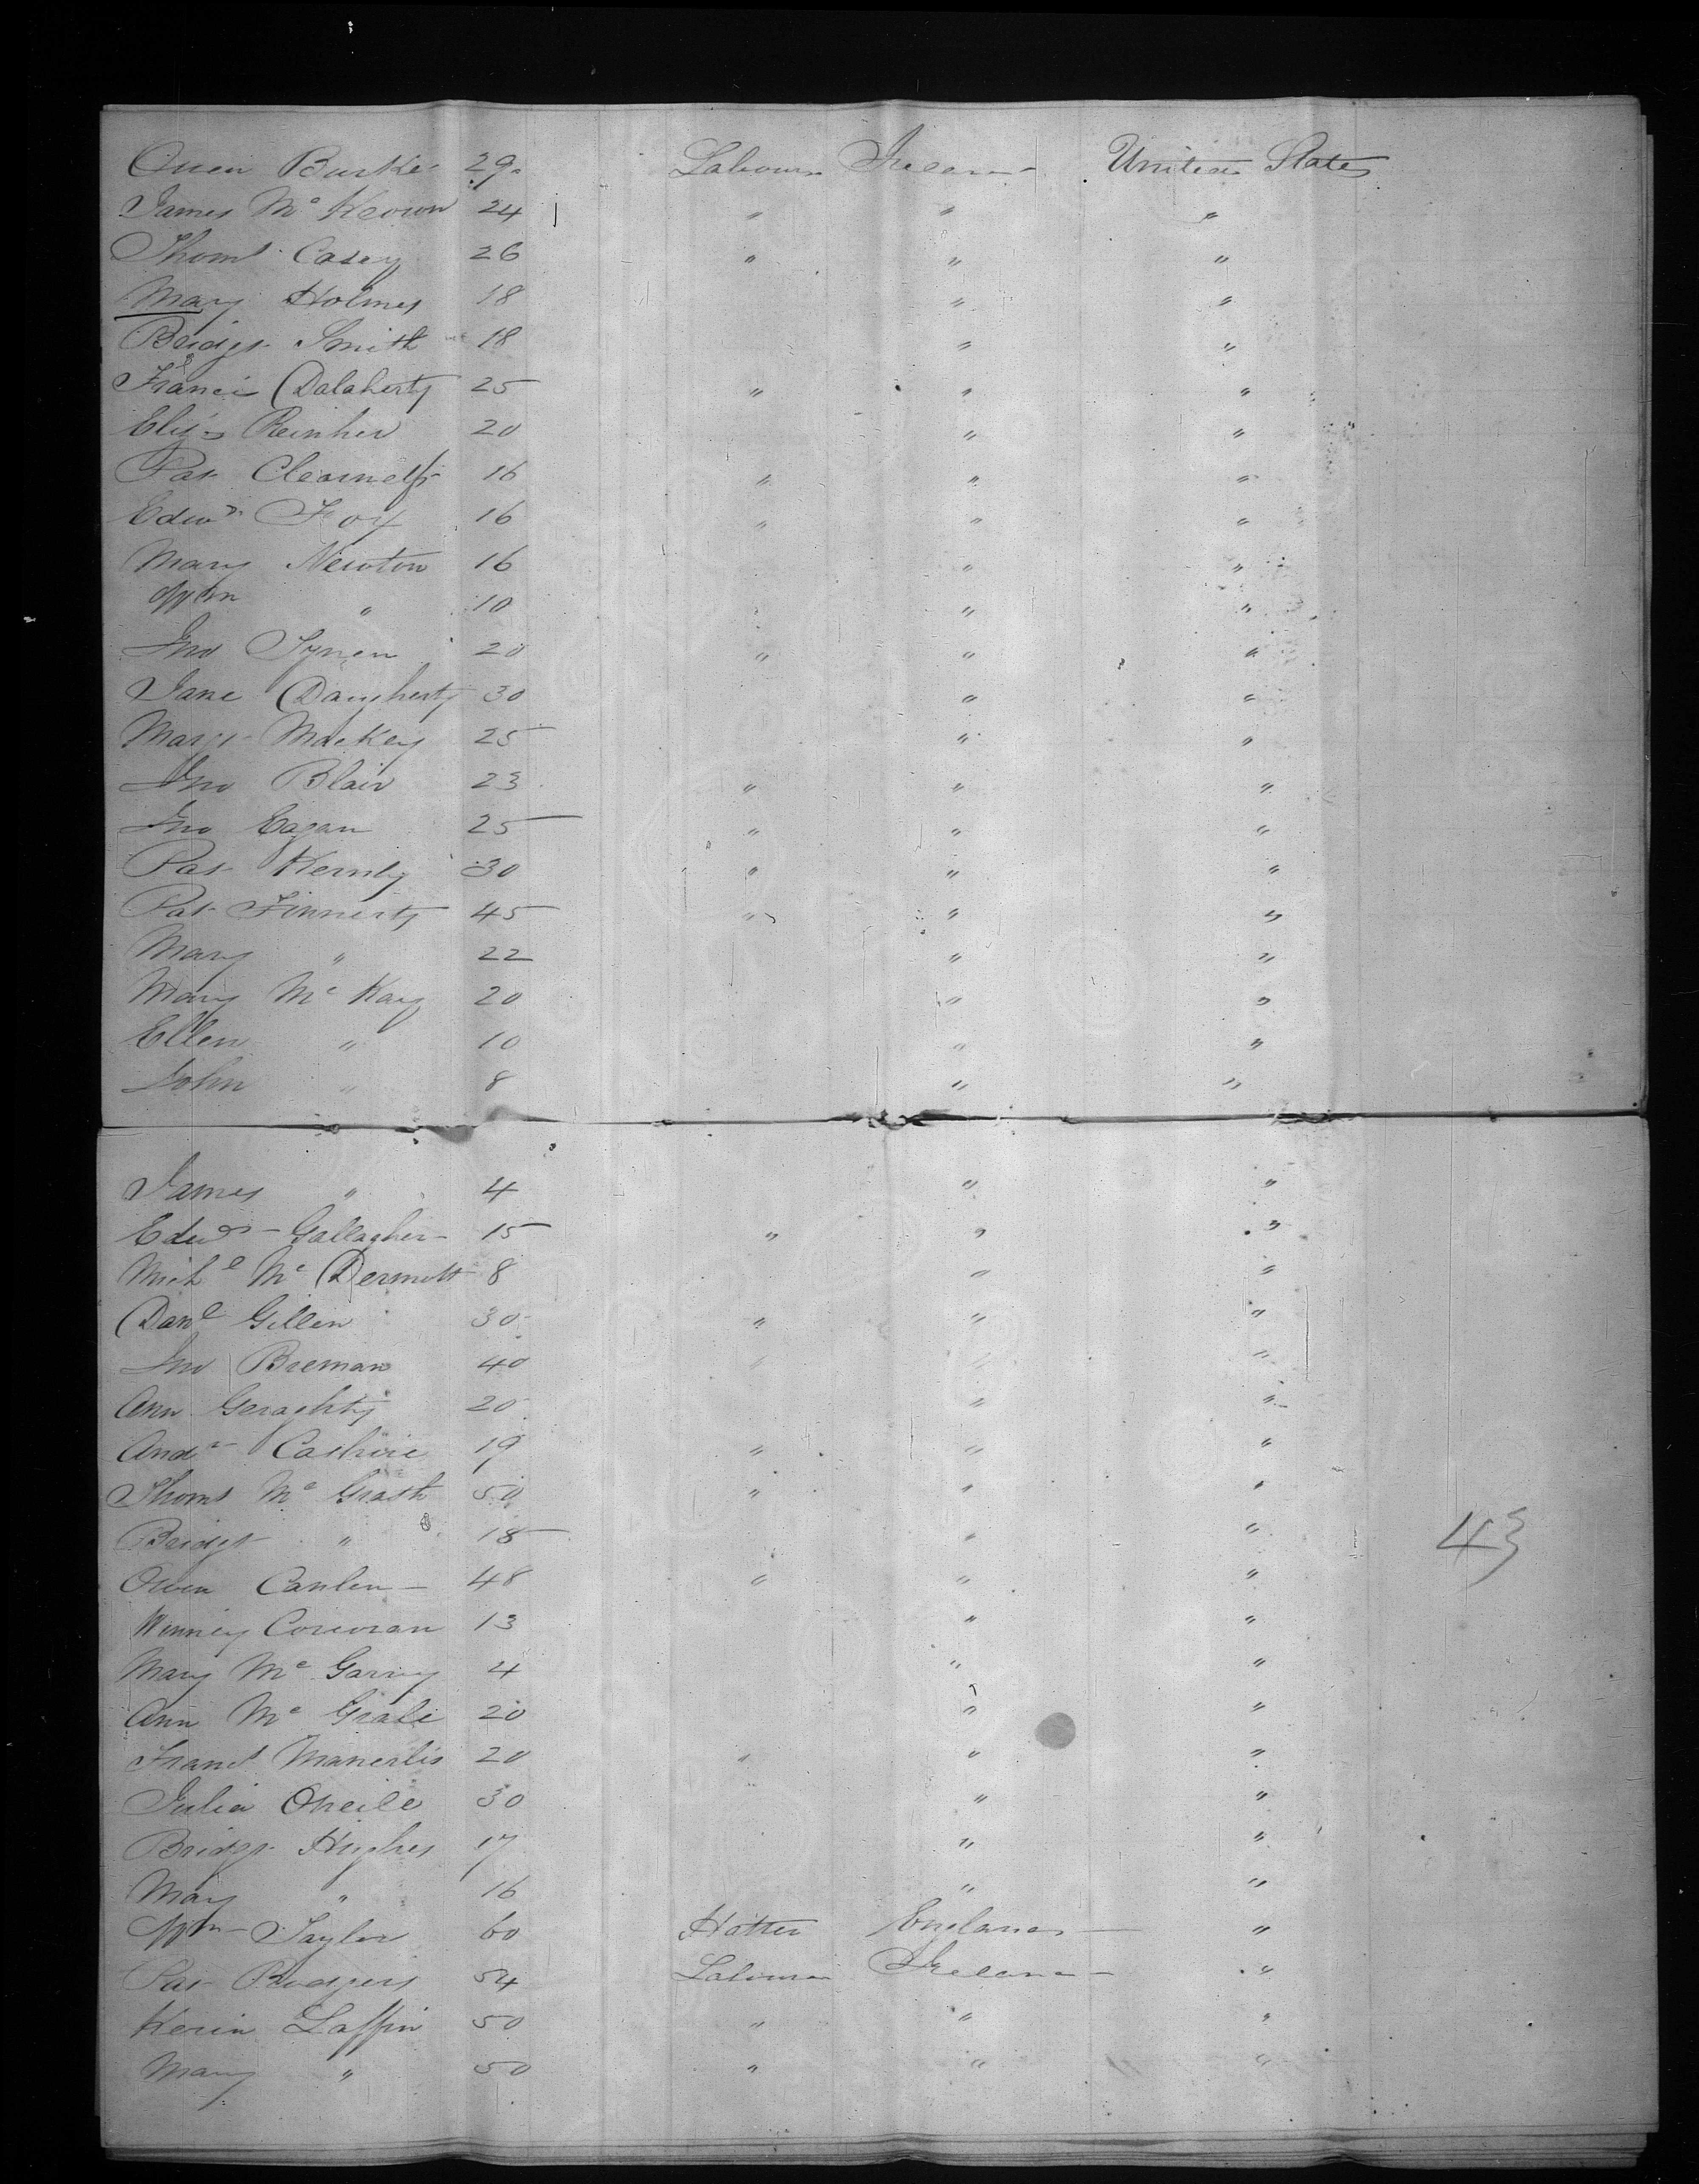 Owen Burke 29 Labourer Ireland United States
James Mc Keown 24 " " "
Thoms Casey 26 " " "
Mary Holmes 18 " "
Bridgt Smith 18 " "
Francis Dalaherty 25 " " "
Eliz 20 " "
Pat 16 " " "
Edwd Foy 16 " " "
Mary Newton 16 " "
Wm " 10 " "
Jno Tynen 20 " " "
Jane Daugherty 30 " "
Margt Mackey 25 " "
Jno Blair 23 " " "
Jno Eagan 25 " " "
Pat Kernly 30 " " "
Pat Finnerty 45 " " "
Mary " 22 " "
Mary Mc Kay 20 " "
Ellen " 10 " "
John " 8 " "
James " 4 " "
Edwd Gallagher 15 " " "
Michl Mc Dermott 8 " "
Danl Gillen 30 " " "
Jno Breman 40 " " "
Ann Geraghty 20 " "
Andw 19 " " "
Thoms Mc Grath 50 " " "
Bridgt " 18 " "
43
Owen Canlen 48 " " "
Winney Corcoran 13 " "
Mary Mc Garvy 4 " "
Ann Mc 20 " "
Frans 20 " " "
Julia Oneile 30 " "
Bridgt Hughes 17 " "
Mary " 16 " "
Wm Taylor 60 Hatter England "
Pat Rodgers 54 Labourer Ireland "
Kerin Laffin 50 " " "
Mary " 50 " " "